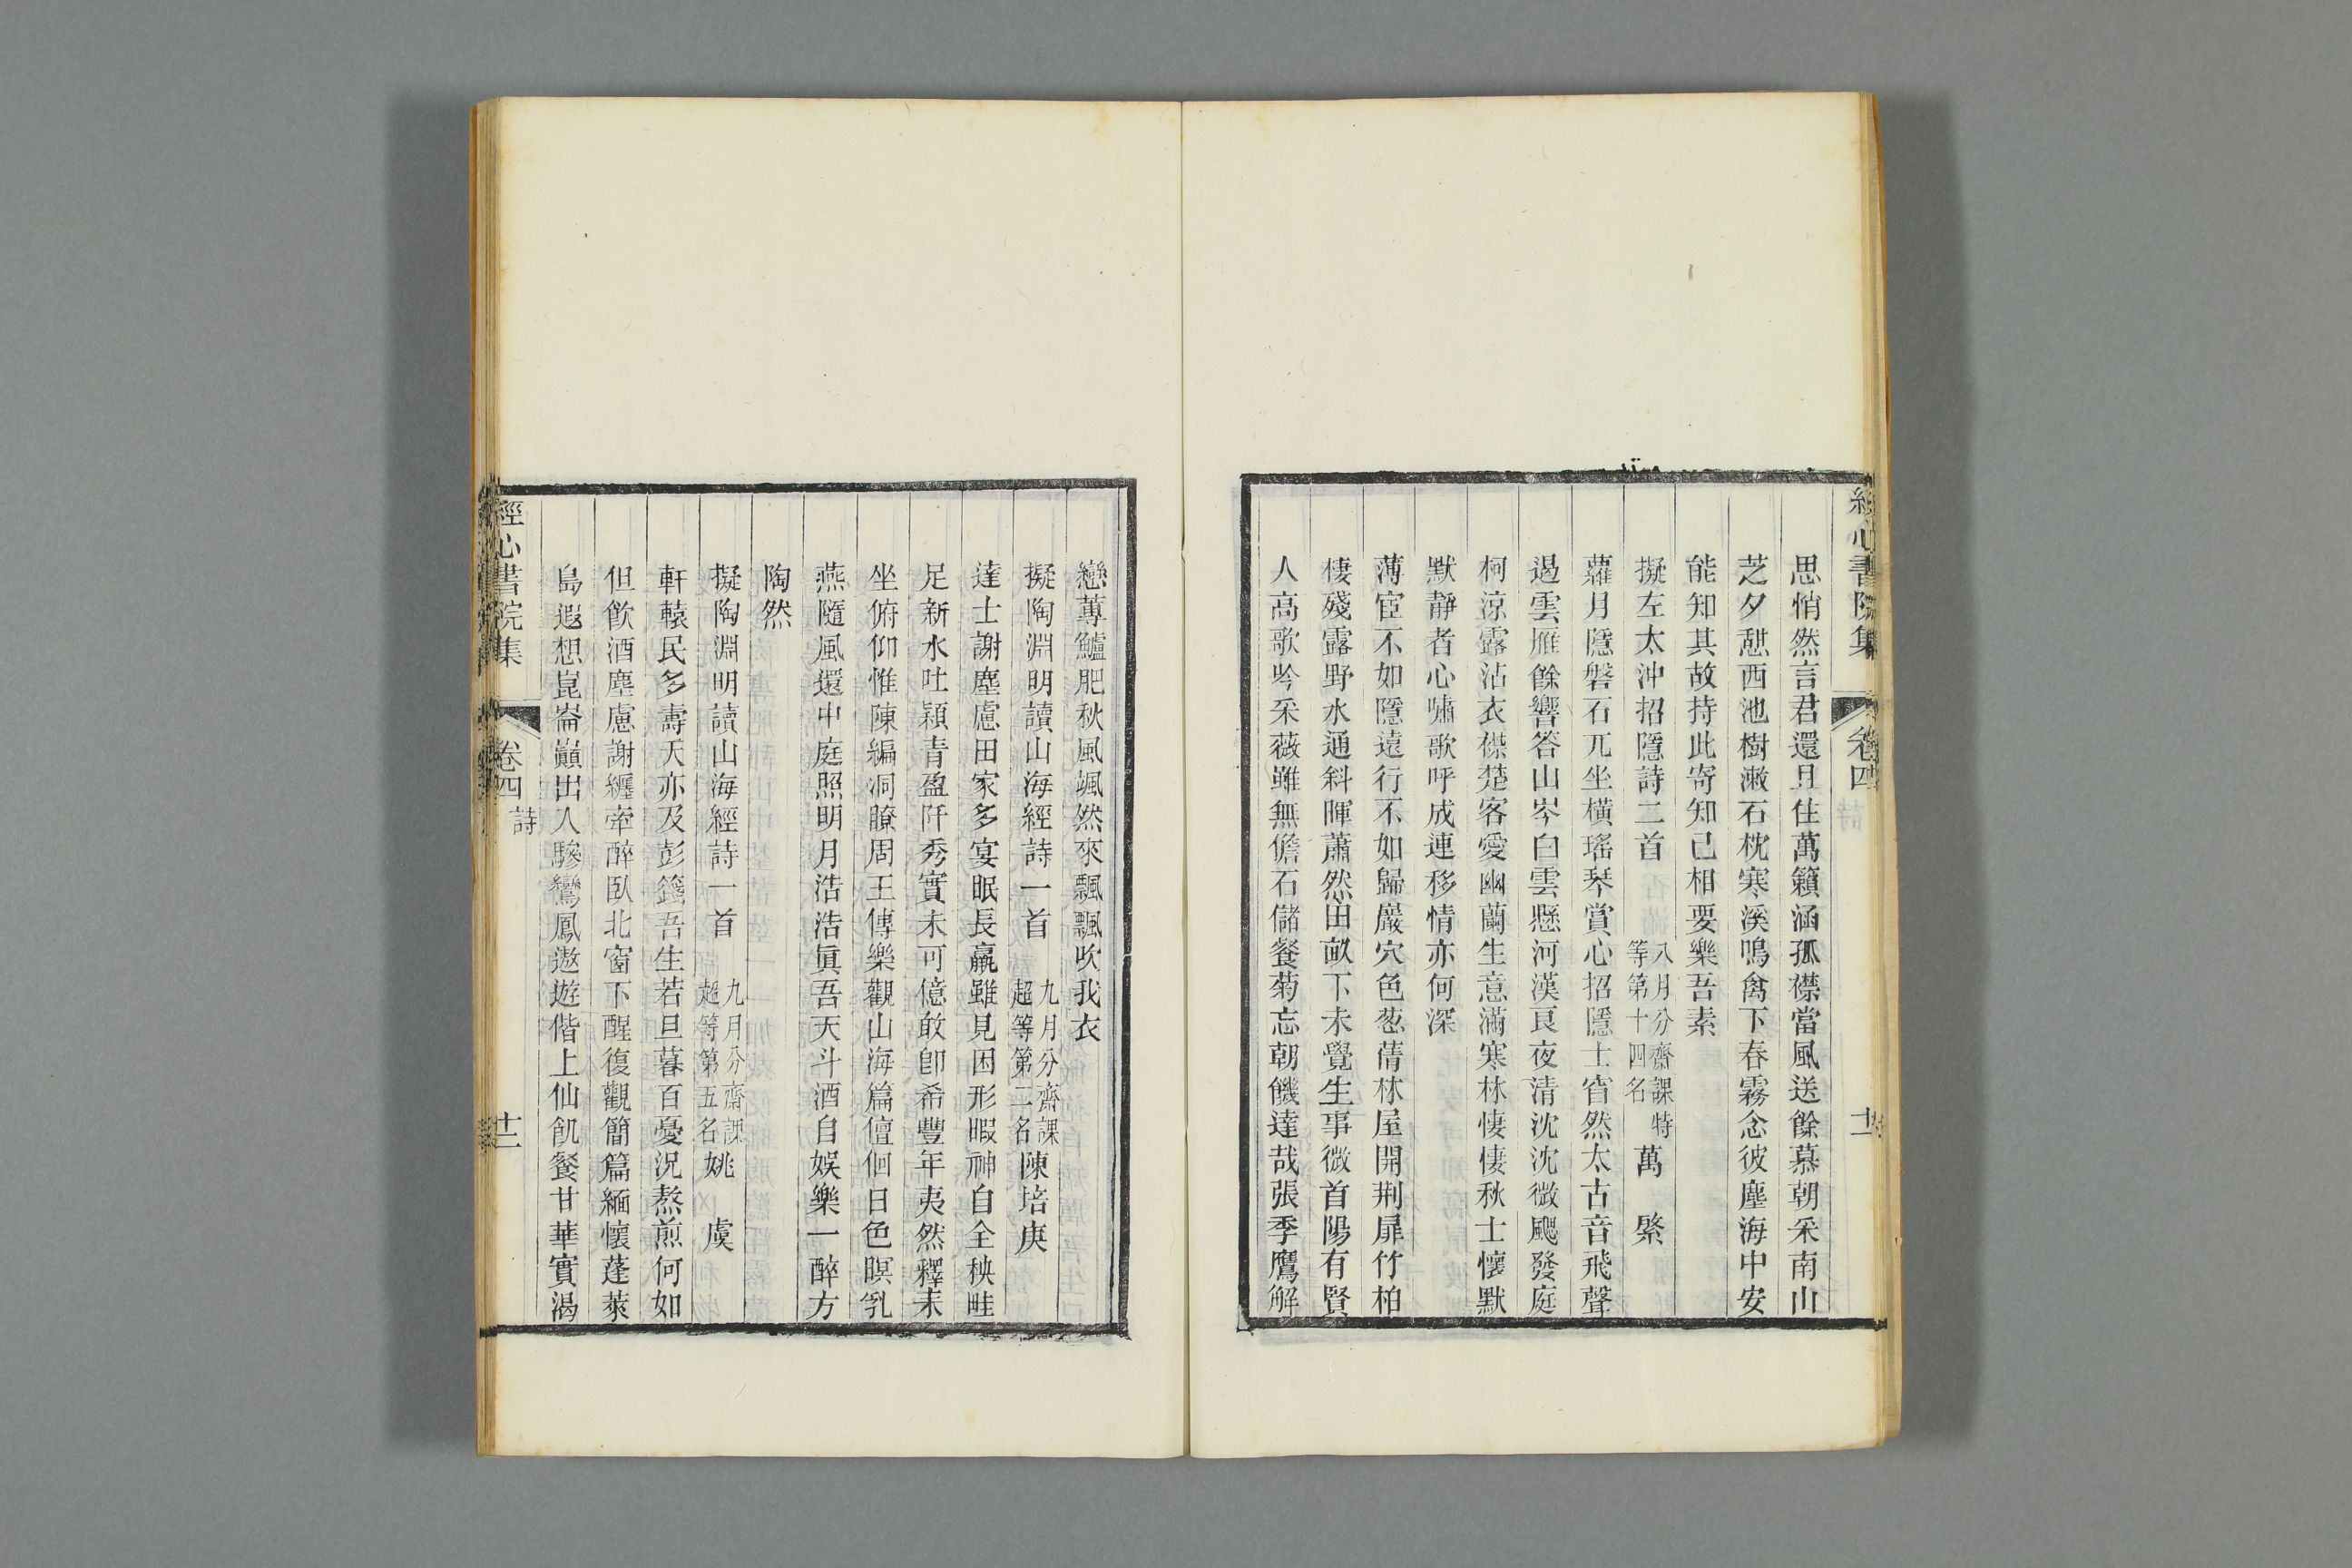 經心書院集 卷四 十一
思悄然言君還且住萬籟涵孤襟當風送餘慕朝采南山
芝夕憇西池樹漱石枕寒溪鳴禽下春霧念彼塵海中安
能知其故持此寄知己相要樂吾素
擬左太沖招隱詩二首 八月分齋課特等第十四名 萬 緊
蘿月隱磐石兀坐橫瑤琴賞心招隱士窅然太古音飛聲
遏雲雁餘響答山岑白雲懸河漢良夜清沈沈微颸發庭
柯涼露沾衣襟楚客愛幽蘭生意滿寒林悽悽秋士懷默
默靜者心嘯歌呼成連移情亦何深
薄宦不如隱遠行不如歸巖穴色蔥蒨林屋開荆扉竹柏
棲殘露野水通斜暉蕭然田畝下未覺生事微首陽有賢
人高歌吟采薇雖無儋石儲餐菊忘朝饑達哉張季鷹解
戀蓴鱸肥秋風颯然來飄飄吹我衣
擬陶淵明讀山海經詩一首 九月分齋課超等第二名 陳培庚
達士謝塵慮田家多宴眠長羸雖見困形暇神自全秧畦
足新水吐穎青盈阡秀實未可億敢卽希豐年夷然釋耒
坐俯仰惟陳編洞瞭周王傳樂觀山海篇儃佪日色暝乳
燕隨風還中庭照明月浩浩眞吾天斗酒自娛樂一醉方
陶然
擬陶淵明讀山海經詩一首 九月分齋課超等第五名 姚 虞
軒轅民多壽夭亦及彭籛吾生若旦暮百憂況熬煎何如
但飲酒塵慮謝纏牽醉臥北窗下醒復觀簡篇緬懷蓬萊
島遐想崑崙巔出入驂鸞鳳遨遊偕上仙飢餐甘華實渴
經心書院集 卷四 詩 十二